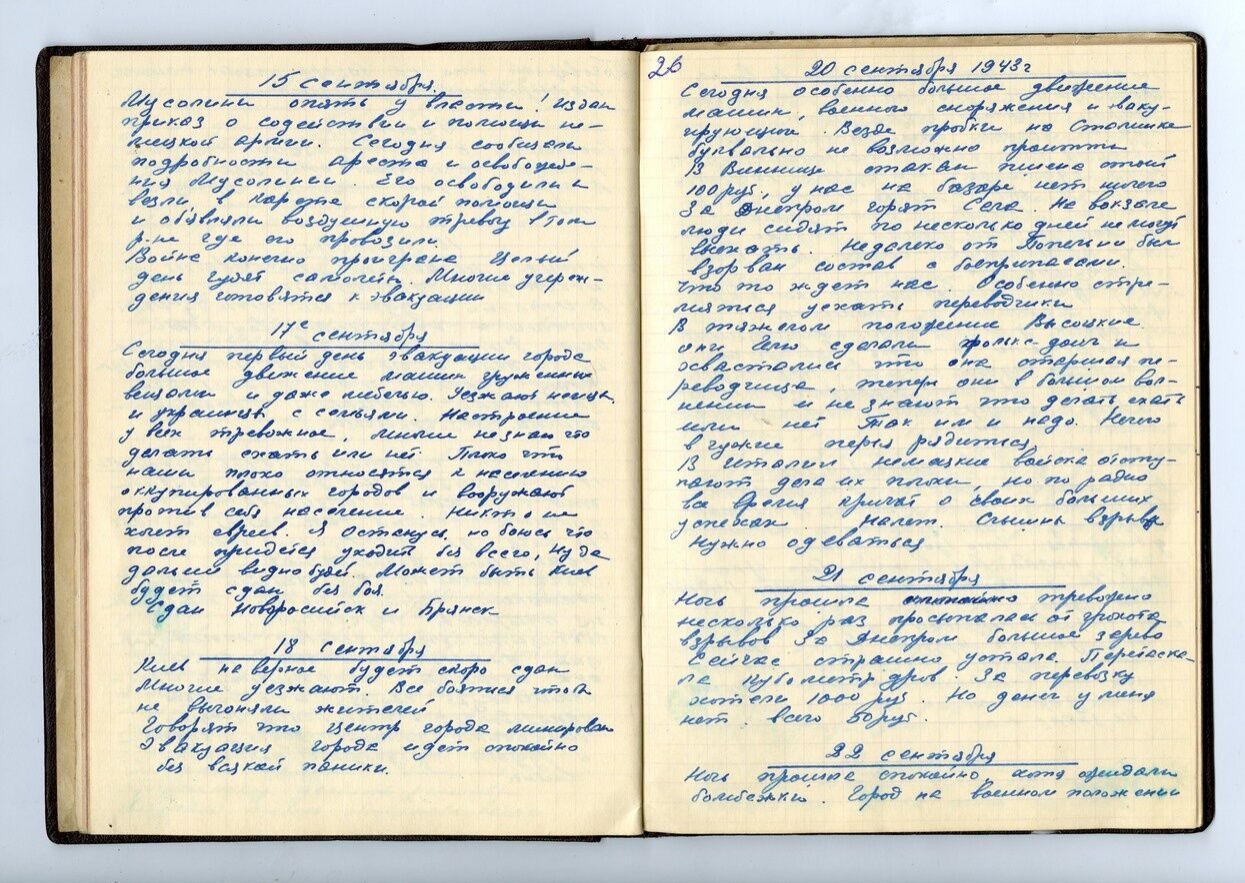 15 сентября.
Мусолини опять у власти! Издан
приказ о содействии и помощи не-
мецкой армии. Сегодня сообщали
подробности ареста и освобожде-
ния Мусолинии. Его освободили и
везли в карете скорой помощи
и объявляли воздушную тревогу в том
р-не где его провозили.
Война конечно проиграна Целый
день гудят самолеты. Многие учреж-
дения готовятся к эвакуации
17е сентября
Сегодня первый день эвакуации города
большое движение машин груженных
вещами и даже мебелью. Уезжают немцы
и украинцы с семьями. Настроение
у всех тревожное, многие не знают что
делать ехать или нет. Плохо что
наши плохо относятся к населению
оккупированных городов и вооружают
против себя население. Никто не
хочет евреев. Я останусь, но боюсь что
после придется уходить без всего, ну да
дальше видно будет. Может быть Киев
будет сдан без боя.
Сдан Новоросийск и Брянск
18 сентября
Киев наверное будет скоро сдан
Многие уезжают. Все боятся чтоб
не выгоняли жителей
Говорят что центр города минирован
Эвакуация города идет спокойно
без всякой паники.
26
20 сентября 1943 г
Сегодня особенно большое движение
машин, военного снаряжения и эваку-
ирующих. Везде пробки на Сталинке
буквально не возможно пройти
В Виннице стакан пшена стоит
100 руб, у нас на базаре нет ничего
За Днепром горят Села. На вокзале
люди сидят по несколько дней не могут
выехать. Недалеко от Попельни был
взорван состав с боеприпасами.
Что то ждет нас. Особенно стре-
мятся уехать переводчики
В тяжелом положение Высоцкие.
они Гелю сделали фольксдойч и
хвастались что она старшая пе-
реводчица, теперь они в большом вол-
нении и не знают что делать ехать
или нет Так им и надо. Нечего
в чужие перья рядиться.
В Италии немецкие войска отсту-
пают дела их плохи, но по радио
все время кричат о своих больших
успехах. Налет. Слышны взрывы
Нужно одеваться
21 сентября
Ночь прошла тревожно
несколько раз просыпалась от грохота
взрывов За Днепром большое зарево
Сейчас страшно устала. Перетаска-
ла кубометр дров. За перевозку
хотели 1000 руб. Но денег у меня
нет. всего 50 руб.
22 сентября
Ночь прошла спокойно, хотя ожидали
бомбежки. Город на военном положении